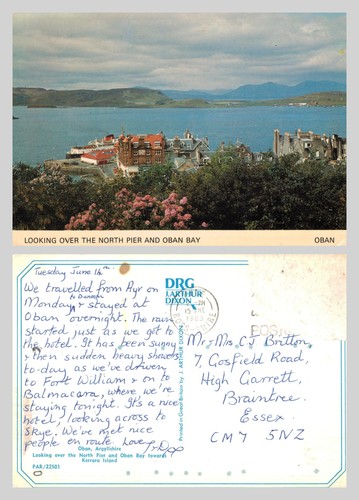 LOOKING OVER THE NORTH PIER AND OBAN BAY OBAN
Tuesday June 14th
We travelled from Ayr on
Monday to Dunadin & stayed at
Oban overnight. The rain
started just as we got to
the hotel. It has been sunny
& then sudden heavy showers
to-day as we've driven
to Fort William & on to
Balmacara, where we're
staying tonight. It's a nice
hotel, looking across to
Skye. We've met nice
people en route. Love
Oban, Argyllshire
Looking over the North Pier and Oban Bay towards
Kerrara Island
PAR/22501
DRG
J. ARTHUR
DIXON
Printed in Great Britain by J. ARTHUR DIXON
Mr & Mrs C J Britton,
7, Gosfield Road,
High Garrett,
Braintree.
Essex.
CM7 5NZ